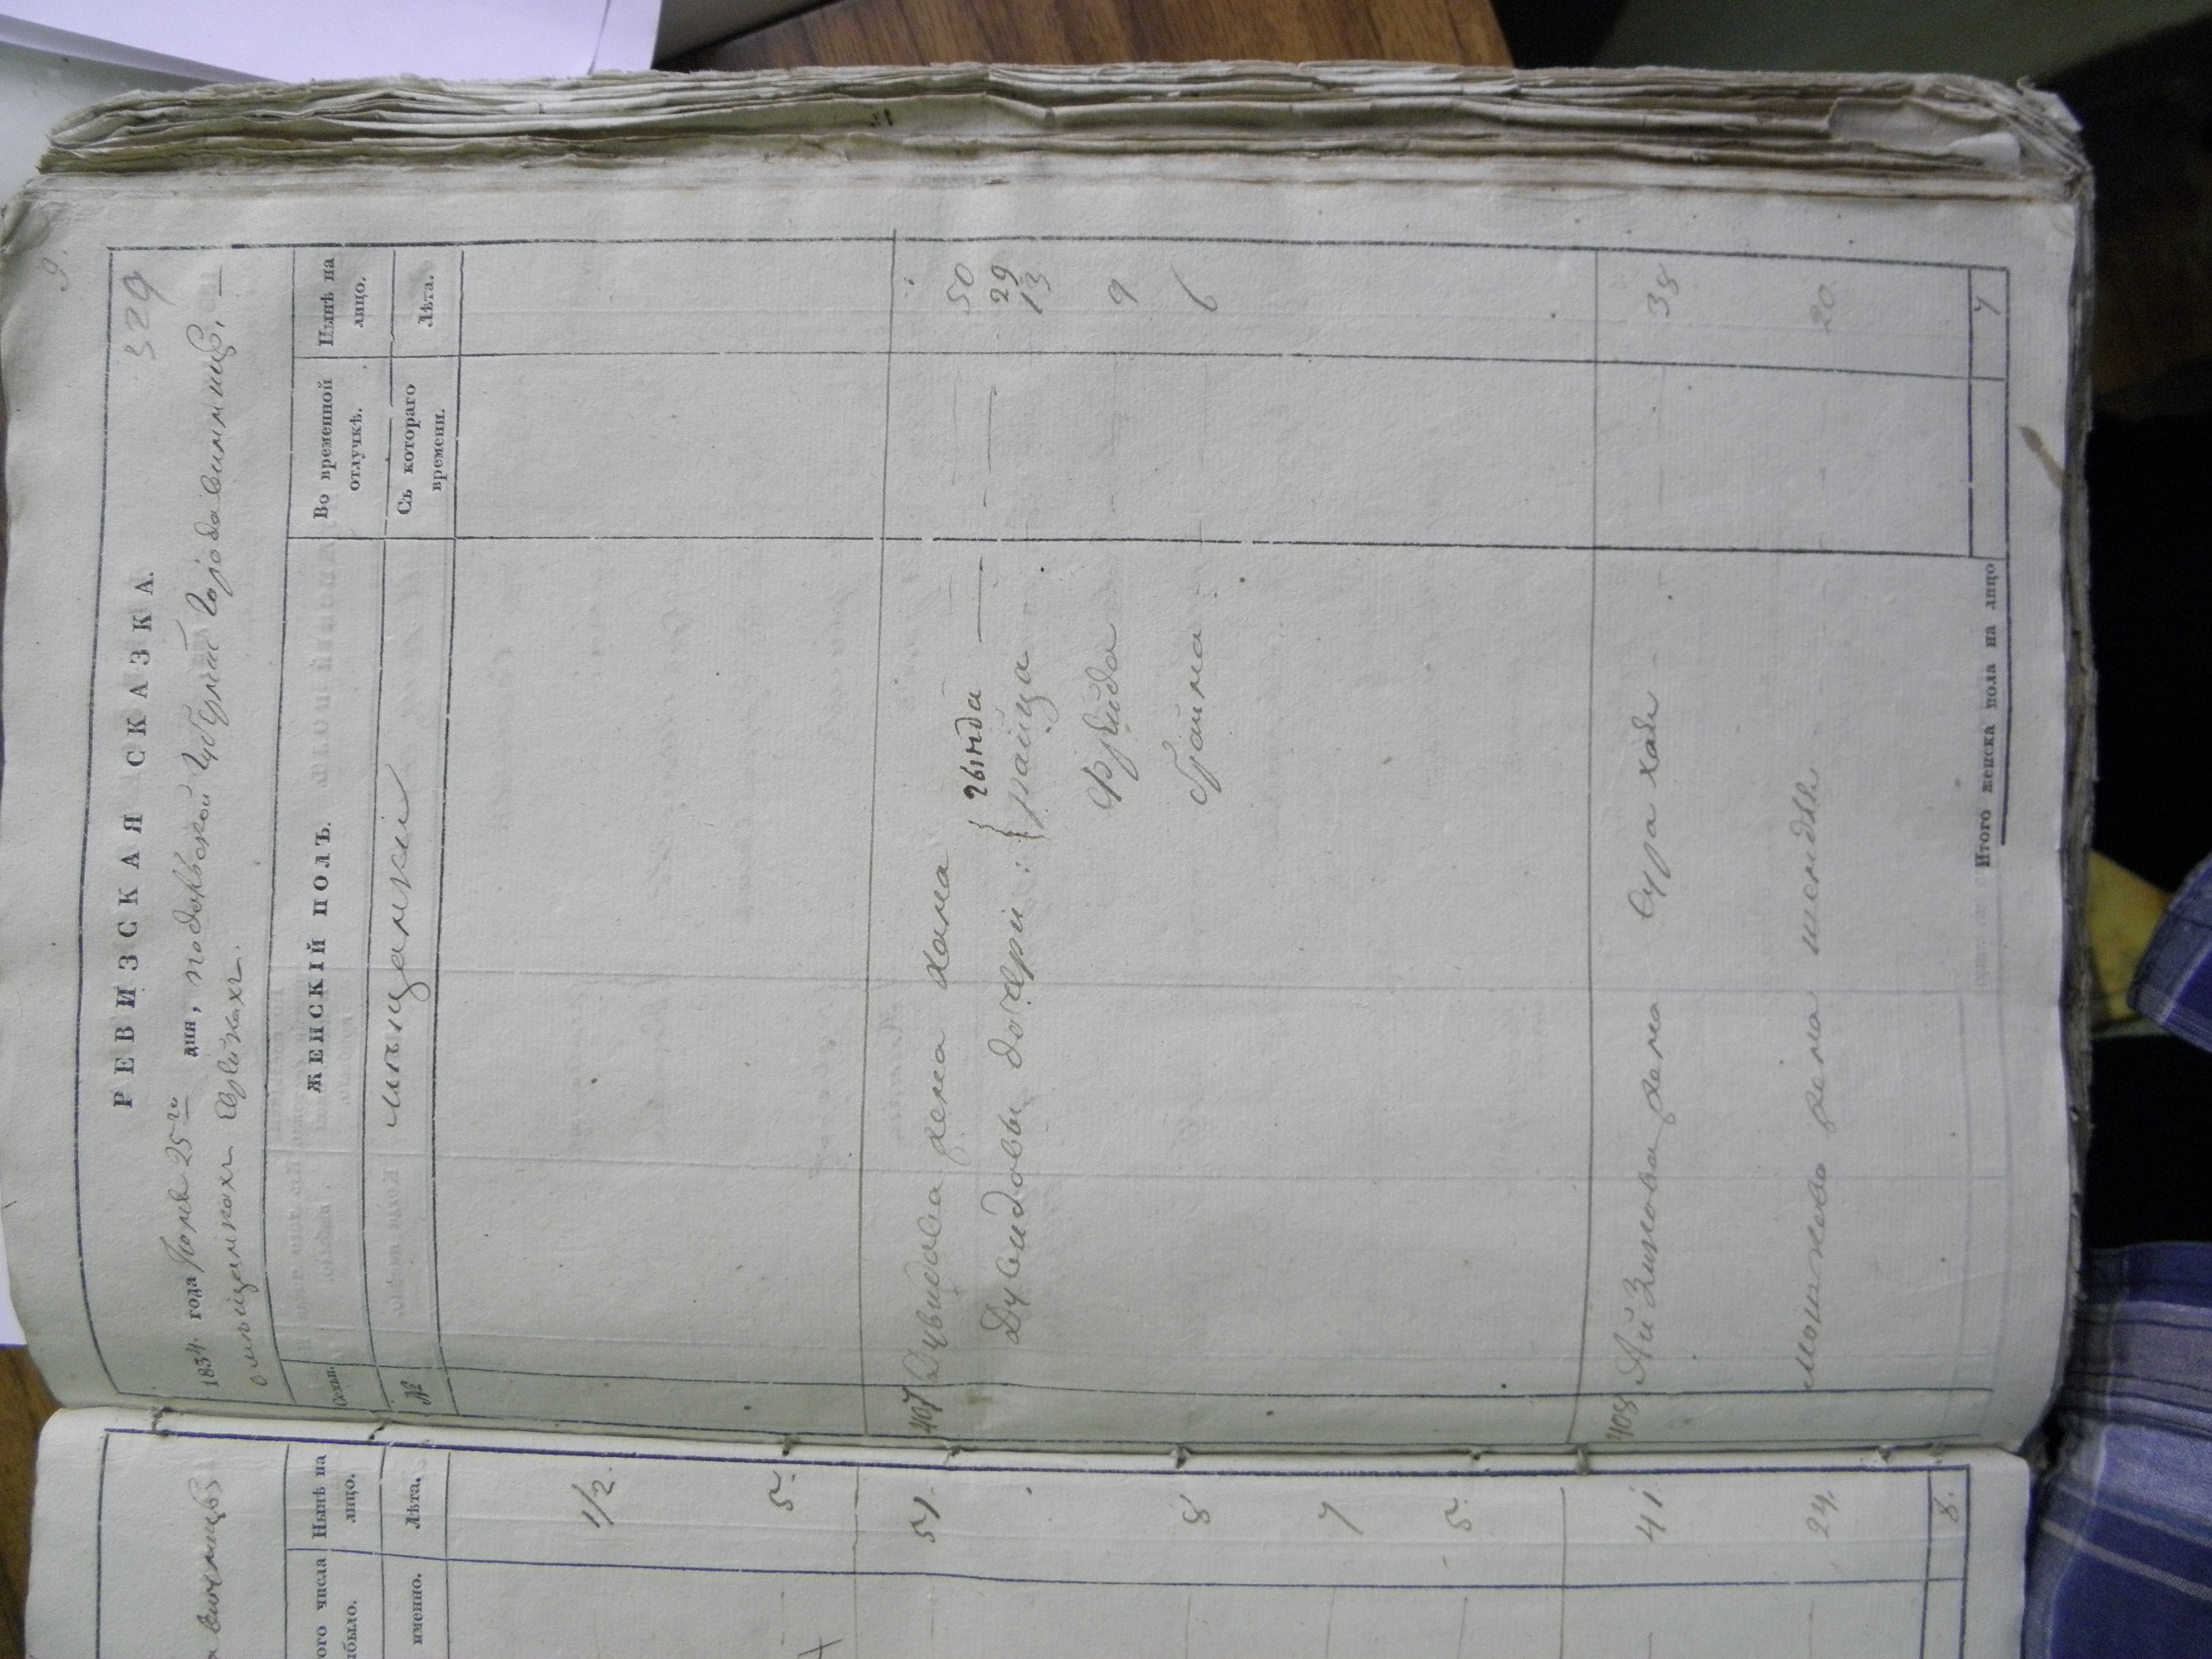 9.
329
РЕВИЗСКАЯ СКАЗКА.
1834 года Июня 25го дня, Подольской Губернии Города Винницы, —
о мѣщанкахъ Еврейкахъ.
Семьи.
ЖЕНСКІЙ ПОЛЪ.
Во временной отлучкѣ.
Нынѣ на лицо.
№
мѣщанки
Съ котораго времени.
Лѣта.
407 Дувидова жена Хана 50
гинда — 29
Дувидовы дочери: райца 13
Фрейда 9
брайна 6
408 Айзикова жена Сура хая 38
Мошкова жена шейндля 20.
Итого женска пола на лицо 7
Винницы
ого числа
было.
Нынѣ на лицо.
именно.
Лѣта.
1/2.
5.
51.
8
7
5.
41.
24.
8.